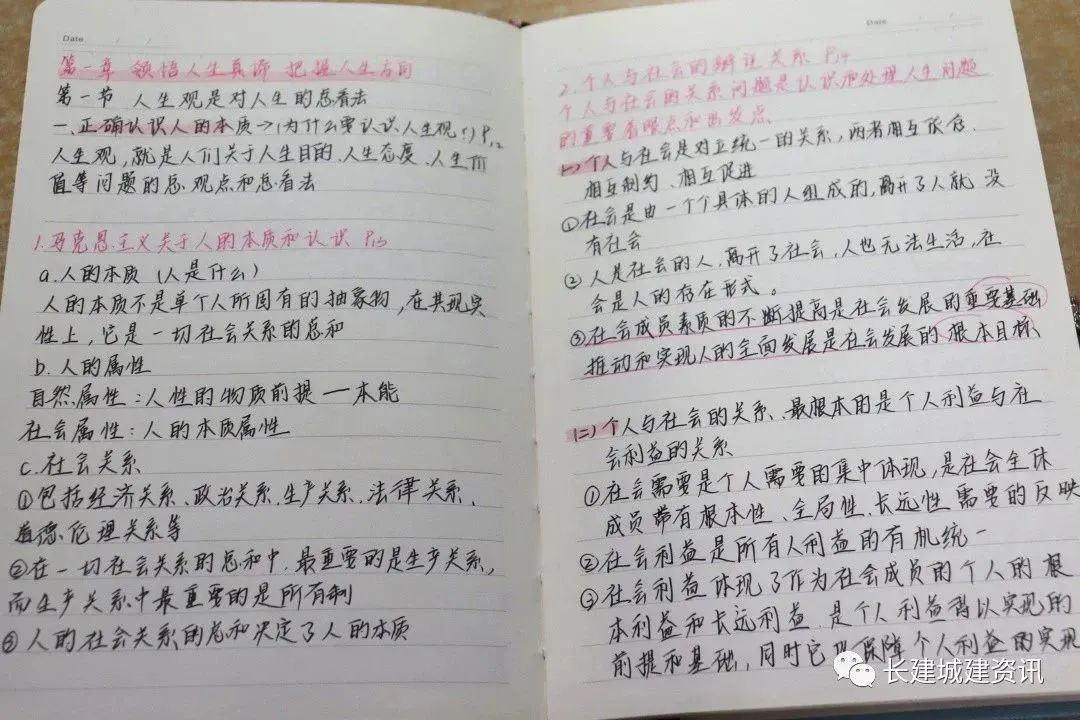 Date
第一章 领悟人生真谛 把握人生方向
第一节 人生观是对人生的总看法
一、正确认识人的本质→(为什么要认识人生观?) P12
人生观,就是人们关于人生目的、人生态度、人生价
值等问题的总观点和总看法
1.马克思主义关于人的本质和认识 P13
a.人的本质 (人是什么)
人的本质不是单个人所固有的抽象物,在其现实
性上,它是一切社会关系的总和
b.人的属性
自然属性:人性的物质前提—本能
社会属性:人的本质属性
c.社会关系
①包括经济关系、政治关系、生产关系、法律关系、
道德、伦理关系等
②在一切社会关系的总和中,最重要的是生产关系,
而生产关系中最重要的是所有制
③人的社会关系的总和决定了人的本质
Date
2.个人与社会的辩证关系 P14
个人与社会的关系问题是认识和处理人生问题
的重要着眼点和出发点
(一)个人与社会是对立统一的关系,两者相互依存、
相互制约、相互促进
①社会是由一个个具体的人组成的,离开了人就没
有社会
②人是社会的人,离开了社会,人也无法生活,社
会是人的存在形式。
③社会成员素质的不断提高是社会发展的重要基础
推动和实现人的全面发展是社会发展的根本目标
(二)个人与社会的关系、最根本的是个人利益与社
会利益的关系
①社会需要是个人需要的集中体现,是社会全体
成员带有根本性、全局性、长远性需要的反映
②社会利益是所有人利益的有机统一
③社会利益体现了作为社会成员的个人的根
本利益和长远利益,是个人利益得以实现的
前提和基础,同时它也保障个人利益的实现
长建城建资讯